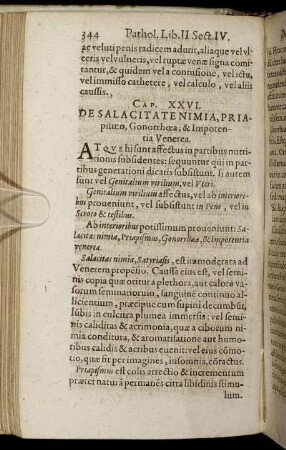 344 Pathol. Lib. II Sect. IV.
ac veluti penis radicem adurit, aliaque vel vl-
ceris vel vulneris, vel ruptæ venæ signa comi-
tantur, & quidem vel a contusione, vel ictu,
vel immisso cathetere, vel calculo, vel aliis
caussis.
CAP. XXVI.
DE SALACITATE NIMIA, PRIA-
pismo, Gonorrhœa, & Impoten-
tia Venerea.
ATQVE hi sunt affectus in partibus nutri-
tionis subsidentes: sequuntur qui in par-
tibus generationi dicatis subsistunt. Ii autem
sunt vel Genitalium virilium, vel Vteri.
Genitalium virilium affectus, vel ab interiori-
bus proveniunt, vel subsistunt in Pene, vel in
Scroto & testibus.
Ab interioribus potissimum proveniunt: Sa-
lacitas nimia, Priapismus, Gonorrhœa, & Impotentia
venerea.
Salacitas nimia, Satyriasis, est immoderata ad
Venerem propensio. Caussa eius est, vel semi-
nis copia quæ oritur a plethora, aut calore va-
sorum seminariorum, sanguine continuo al-
licientium, præcipue cum stupei decumbut,
lubis in culcitra plumea immersis: vel semi-
nis caliditas & acrimonia, quæ a ciborum ni-
mia conditura, & aromatisatione aut humo-
ribus calidis & acribus euenit: vel eius cõmo-
tio, quæ fit per imagines, insomnia, côtactus.
Priapismus est colis arrectio & incrementum
præter naturã permanẽs citra libidinis stimu-
lum.